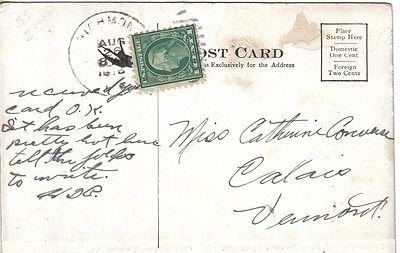 RICHMON
AUG
POST CARD
Exclusively for the Address
Place
Stamp Here
Domestic
One Cent
Foreign
Two Cents
received your
card O.K.
It has been
pretty hot here
tell the folks
to write.
Miss Catherine Converse
Calais
Vermont.